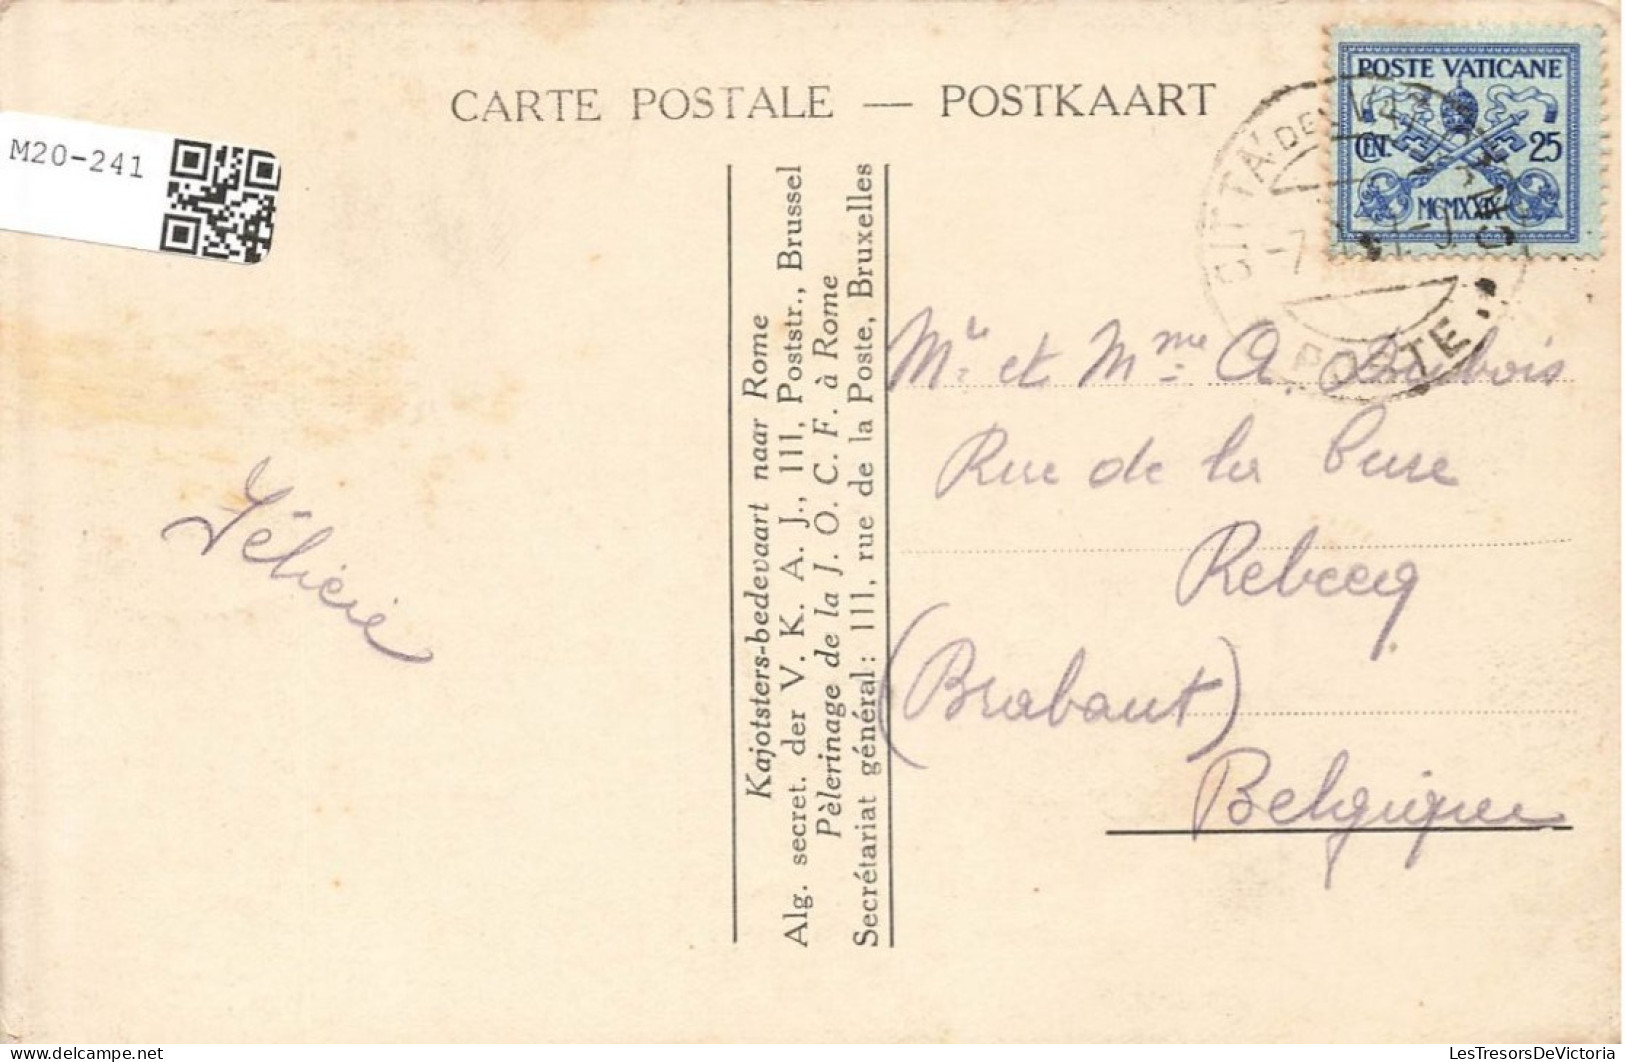 CARTE POSTALE — POSTKAART
M20-241
POSTE VATICANE
CEN. 25
CITTA DEL
POSTE
Kajotsters-bedevaart naar Rome
Alg. secret. der V. K. A. J., 111, Poststr., Brussel
Pèlerinage de la J. O. C. F. à Rome
Secrétariat général: 111, rue de la Poste, Bruxelles
Mr. et Mme A. Dubois
Rue de la Cure
Rebecq
(Brabant)
Belgique
Félicie
delcampe.net
LesTresorsDeVictoria